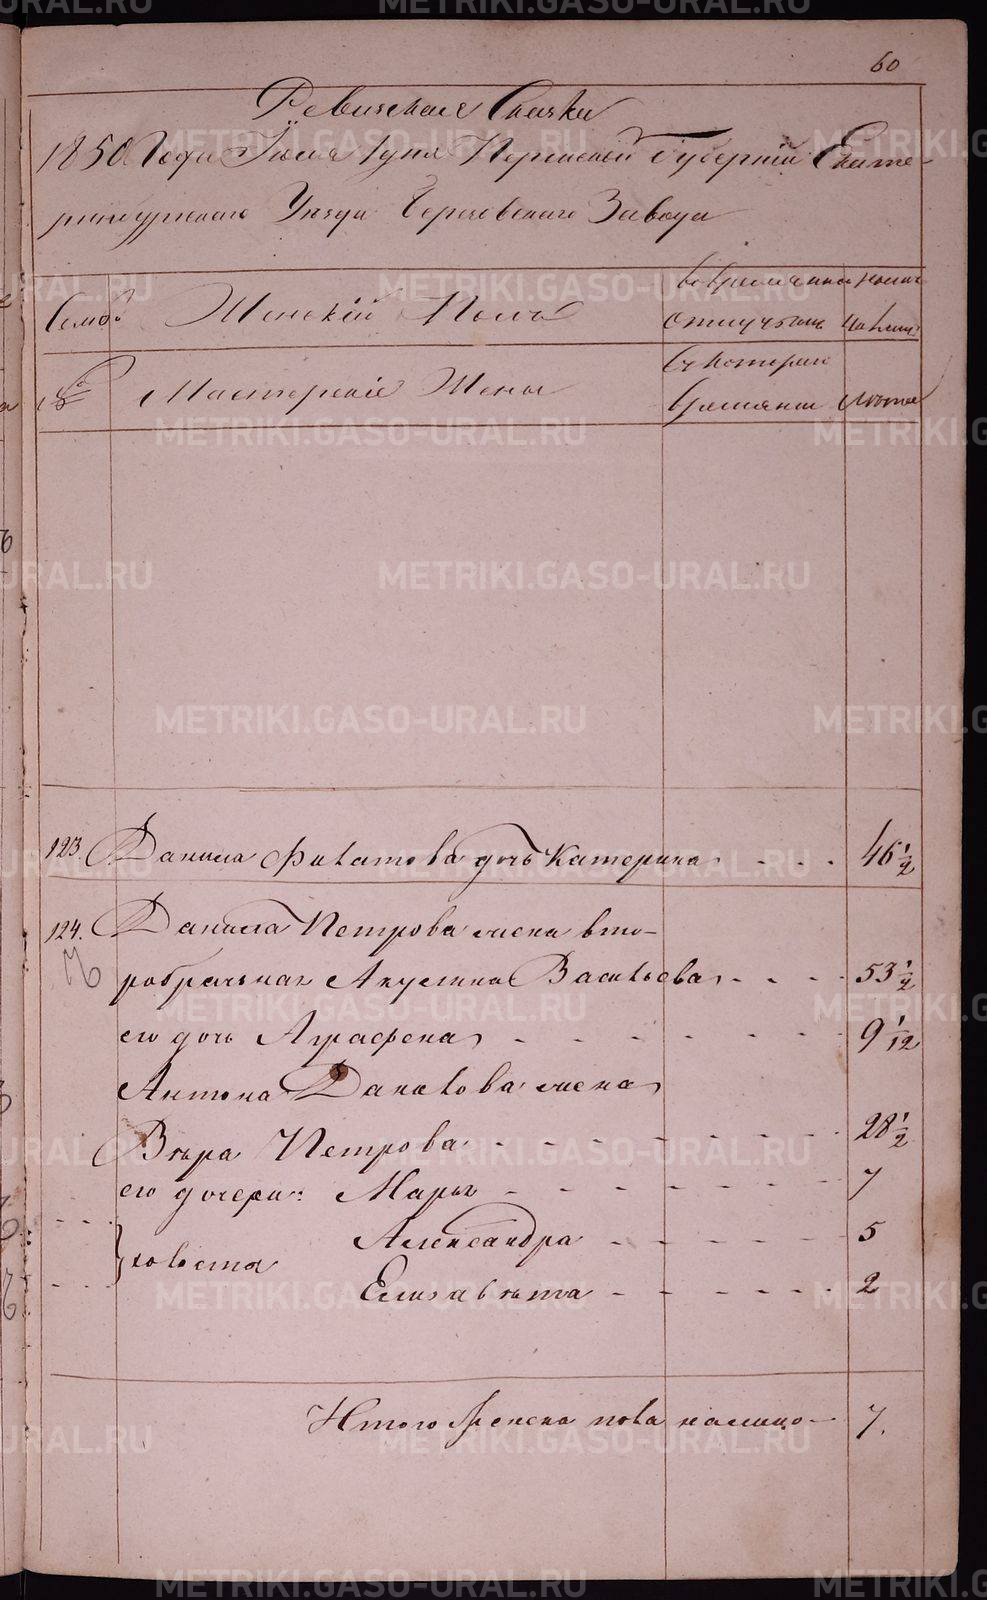 60
Ревизская Сказка
1850 Года Июля дня Пермской Губерніи Екате-
ринбургскаго Уѣзда Березовскаго Завода
Семьи Женскій Полъ во временной отлучкѣ нынѣ на лицо
№ Мастерскіе Жены съ котораго времяни лѣта
123. Данила Филатова дочь Катерина - - - 46 1/2
124. Данила Петрова жена вто-
робрачьная Акулина Васильева - - - 53 1/2
его дочь Аграфена - - - - - - 9 1/12
Антона Данилова жена
Вѣра Петрова - - - - - - 28 1/2
его дочери: Марья - - - - - - 7
Александра - - - - - 5
Елизавѣта - - - - - 2
Итого женска пола налицо - 7.
METRIKI.GASO-URAL.RU